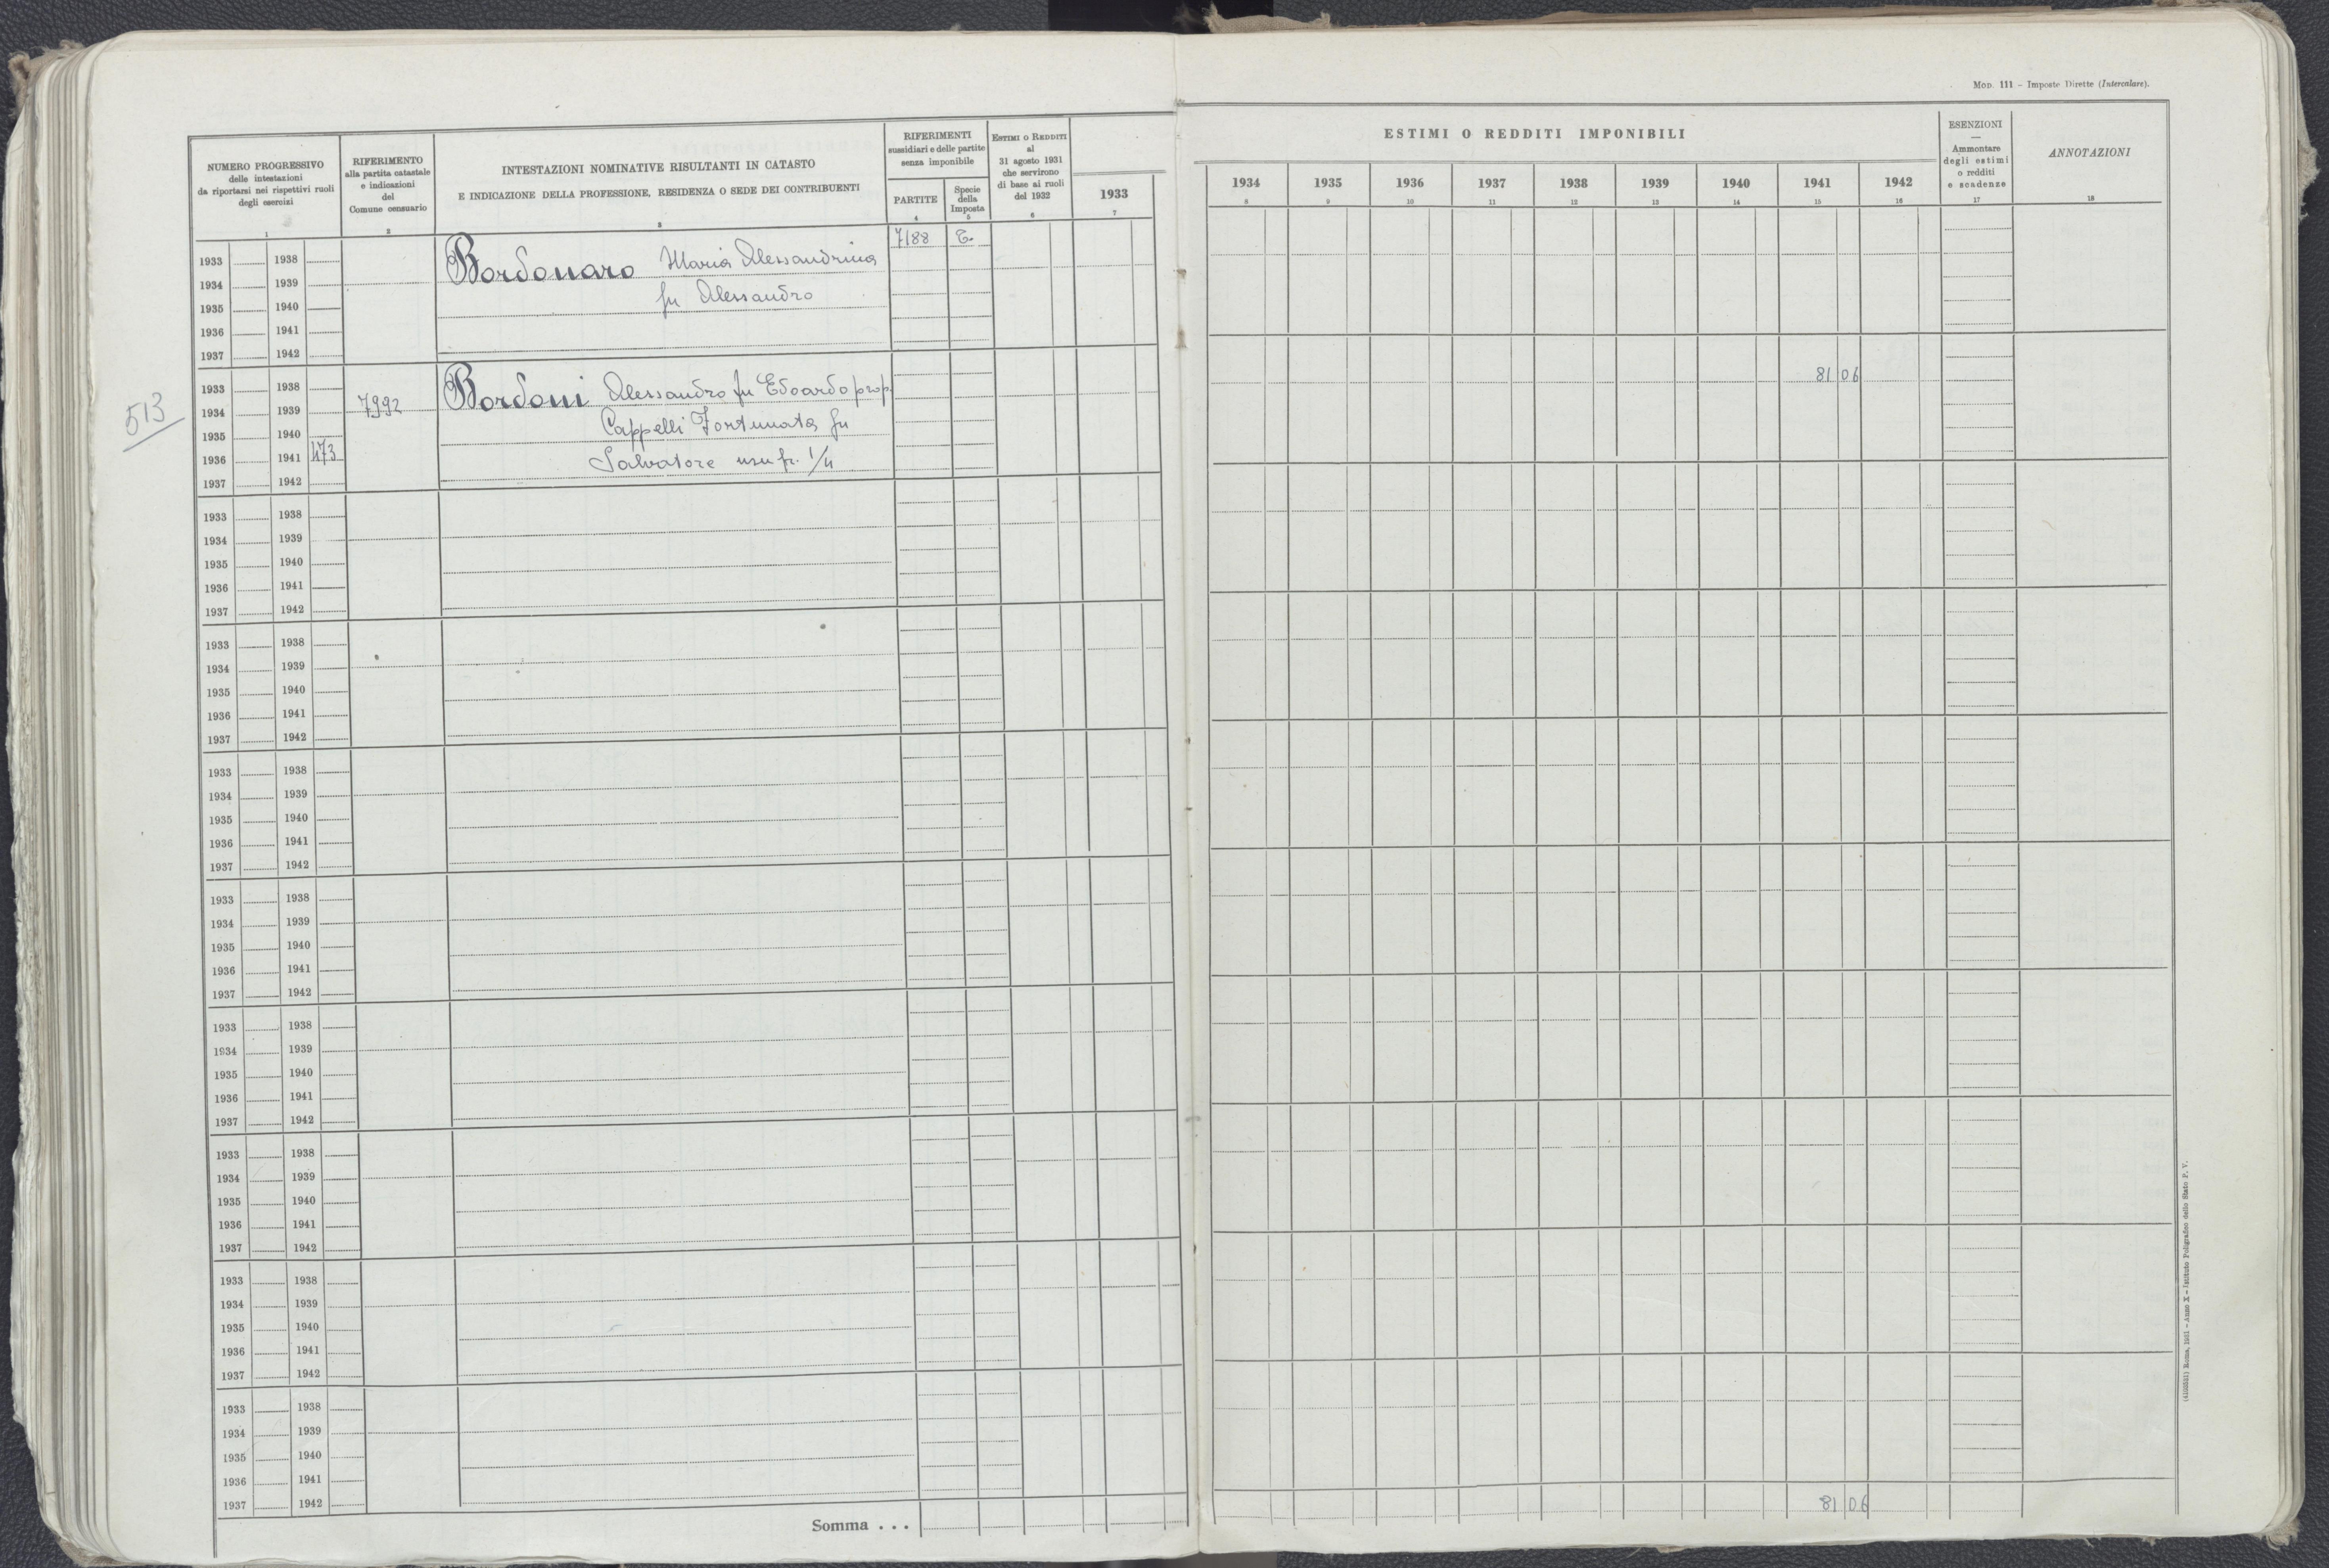 MOD. 111 - Imposte Dirette (Intercalare).
NUMERO PROGRESSIVO
delle intestazioni
da riportarsi nei rispettivi ruoli
degli esercizi
RIFERIMENTO
alla partita catastale
e indicazioni
del
Comune censuario
INTESTAZIONI NOMINATIVE RISULTANTI IN CATASTO
E INDICAZIONE DELLA PROFESSIONE, RESIDENZA O SEDE DEI CONTRIBUENTI
RIFERIMENTI
sussidiari e delle partite
senza imponibile
PARTITE
Specie
della
Imposta
ESTIMI O REDDITI
al
31 agosto 1931
che servirono
di base ai ruoli
del 1932
1933
ESTIMI O REDDITI IMPONIBILI
1934 1935 1936 1937 1938 1939 1940 1941 1942
ESENZIONI
—
Ammontare
degli estimi
o redditi
e scadenze
ANNOTAZIONI
1 2 3 4 5 6 7 8 9 10 11 12 13 14 15 16 17 18
7188 T.
1933 1938 Bordonaro Maria Alessandrina
1934 1939
1935 1940 fu Alessandro
1936 1941
1937 1942
1933 1938 Bordoni Alessandro fu Edoardo prop. 81 06
513 1934 1939 7992
1935 1940 Cappelli Fortunata fu
1936 1941 473 Salvatore usufr. 1/4
1937 1942
1933 1938
1934 1939
1935 1940
1936 1941
1937 1942
1933 1938
1934 1939
1935 1940
1936 1941
1937 1942
1933 1938
1934 1939
1935 1940
1936 1941
1937 1942
1933 1938
1934 1939
1935 1940
1936 1941
1937 1942
1933 1938
1934 1939
1935 1940
1936 1941
1937 1942
1933 1938
1934 1939
1935 1940
1936 1941
1937 1942
1933 1938
1934 1939
1935 1940
1936 1941
1937 1942
1933 1938
1934 1939
1935 1940
1936 1941
1937 1942
Somma . . . 81 06
Roma, 1931 - Anno X - Istituto Poligrafico dello Stato P. V.